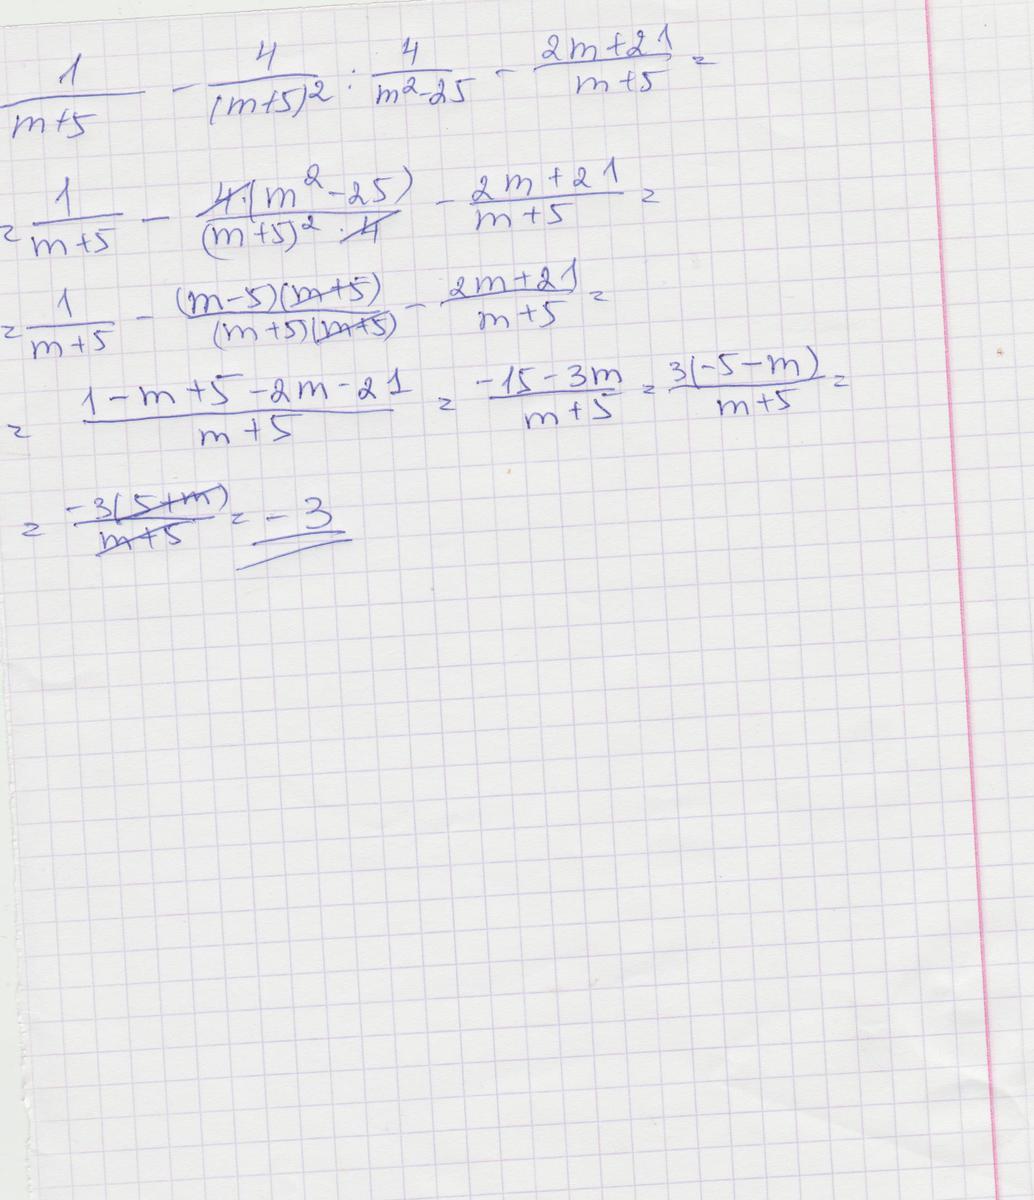 1/(m+5) - 4/(m+5)² : 4/(m²-25) - (2m+21)/(m+5) =
= 1/(m+5) - 4·(m²-25)/((m+5)²·4) - (2m+21)/(m+5) =
= 1/(m+5) - (m-5)(m+5)/((m+5)(m+5)) - (2m+21)/(m+5) =
= (1-m+5-2m-21)/(m+5) = (-15-3m)/(m+5) = 3(-5-m)/(m+5) =
= -3(5+m)/(m+5) = -3